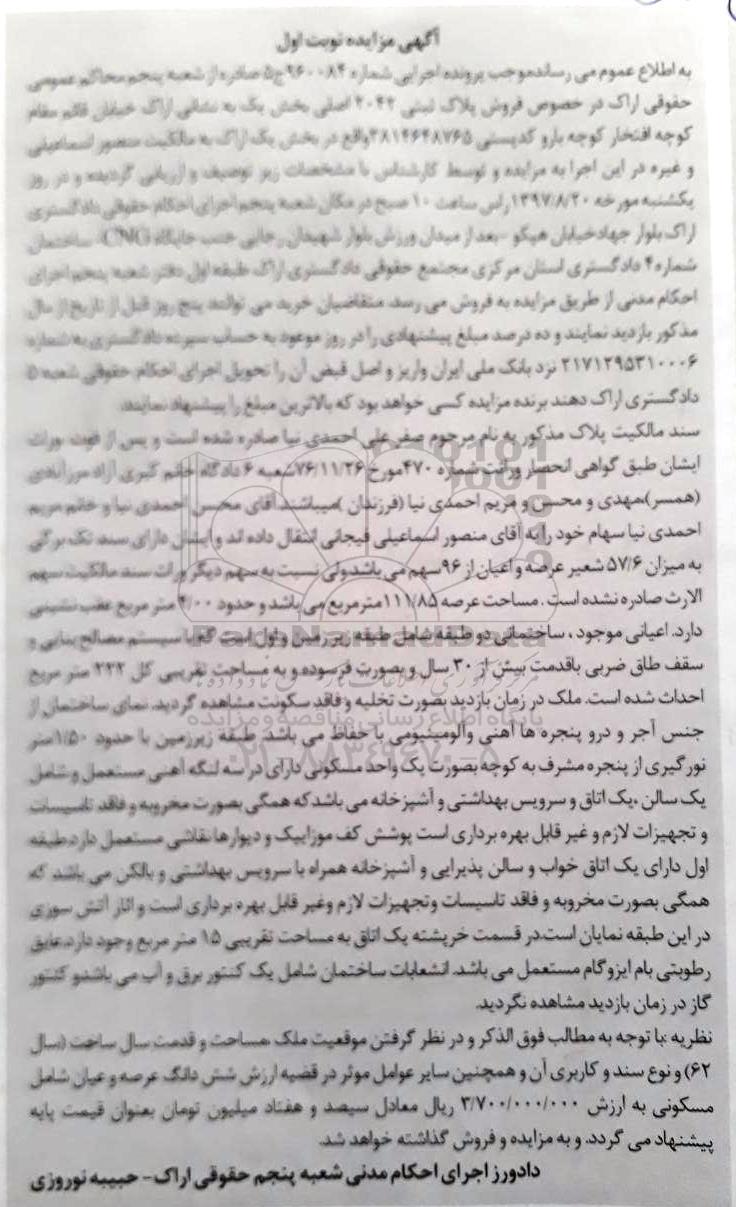 آگهی مزایده نوبت اول
به اطلاع عموم می رساندموجب پرونده اجرایی شماره ۹۶۰۰۸۴ج۵ صادره از شعبه پنجم محاکم عمومی
حقوقی اراک در خصوص فروش پلاک ثبتی ۲۰۴۲ اصلی بخش یک به نشانی اراک خیابان قائم مقام
کوچه افتخار کوچه یارو کدپستی ۳۸۱۴۶۴۸۷۶۵واقع در بخش یک اراک به مالکیت منصور اسماعیلی
و غیره در این اجرا به مزایده و توسط کارشناس با مشخصات زیر توصیف و ارزیابی گردیده و در روز
یکشنبه مورخه ۱۳۹۷/۸/۲۰راس ساعت ۱۰ صبح در مکان شعبه پنجم اجرای احکام حقوقی دادگستری
اراک بلوار جهادخیابان هپکو -بعد از میدان ورزش بلوار شهیدان رجایی جنب جایگاه CNG، ساختمان
شماره۴ دادگستری استان مرکزی مجتمع حقوقی دادگستری اراک طبقه اول دفتر شعبه پنجم اجرای
احکام مدنی از طریق مزایده به فروش می رسد. متقاضیان خرید می توانند پنج روز قبل از تاریخ از مال
مذکور بازدید نمایند و ده درصد مبلغ پیشنهادی را در روز موعود به حساب سپرده دادگستری به شماره
۲۱۷۱۲۹۵۳۱۰۰۰۶ نزد بانک ملی ایران واریز و اصل قبض آن را تحویل اجرای احکام حقوقی شعبه ۵
دادگستری اراک دهند برنده مزایده کسی خواهد بود که بالاترین مبلغ را پیشنهاد نمایند.
سند مالکیت پلاک مذکور به نام مرحوم صفرعلی احمدی نیا صادره شده است و پس از فوت وراث
ایشان طبق گواهی انحصار وراثت شماره ۴۷۰مورخ ۷۶/۱۱/۲۶شعبه ۶ دادگاه خانم کبری آزاد مرزآبادی
(همسر)،مهدی و محسن و مریم احمدی نیا (فرزندان )میباشند.آقای محسن احمدی نیا و خانم مریم
احمدی نیا سهام خود را به آقای منصور اسماعیلی فیجانی انتقال داده اند و ایشان دارای سند تک برگی
به میزان ۵۷/۶ شعیر عرصه و اعیان از ۹۶سهم می باشدولی نسبت به سهم دیگر وراث سند مالکیت سهم
الارث صادره نشده است. مساحت عرصه ۱۱۱/۸۵مترمربع می باشد و حدود ۴/۰۰ متر مربع عقب نشینی
دارد. اعیانی موجود ، ساختمانی دو طبقه شامل طبقه زیر زمین و اول است که با سیستم مصالح بنایی و
سقف طاق ضربی باقدمت بیش از ۳۰ سال و بصورت فرسوده و به مساحت تقریبی کل ۲۲۲ متر مربع
احداث شده است. ملک در زمان بازدید بصورت تخلیه و فاقد سکونت مشاهده گردید. نمای ساختمان از
جنس آجر و درو پنجره ها آهنی وآلومینیومی با حفاظ می باشد. طبقه زیرزمین با حدود ۱/۵۰متر
نورگیری از پنجره مشرف به کوچه بصورت یک واحد مسکونی دارای در سه لنگه آهنی مستعمل وشامل
یک سالن ،یک اتاق و سرویس بهداشتی و آشپزخانه می باشد که همگی بصورت مخروبه و فاقد تاسیسات
و تجهیزات لازم و غیر قابل بهره برداری است پوشش کف موزاییک و دیوارها نقاشی مستعمل دارد.طبقه
اول دارای یک اتاق خواب و سالن پذیرایی و آشپزخانه همراه با سرویس بهداشتی و بالکن می باشد که
همگی بصورت مخروبه و فاقد تاسیسات وتجهیزات لازم وغیر قابل بهره برداری است و اثار آتش سوزی
در این طبقه نمایان است.در قسمت خرپشته یک اتاق به مساحت تقریبی ۱۵ متر مربع وجود دارد.عایق
رطوبتی بام ایزوگام مستعمل می باشد. انشعابات ساختمان شامل یک کنتور برق و آب می باشدو کنتور
گاز در زمان بازدید مشاهده نگردید.
نظریه :با توجه به مطالب فوق الذکر و در نظر گرفتن موقعیت ملک ،مساحت و قدمت سال ساخت (سال
۶۲) و نوع سند و کاربری آن و همچنین سایر عوامل موثر در قضیه ارزش شش دانگ عرصه و عیان شامل
مسکونی به ارزش ۳/۷۰۰/۰۰۰/۰۰۰ ریال معادل سیصد و هفتاد میلیون تومان بعنوان قیمت پایه
پیشنهاد می گردد. و به مزایده و فروش گذاشته خواهد شد.
دادورز اجرای احکام مدنی شعبه پنجم حقوقی اراک- حبیبه نوروزی